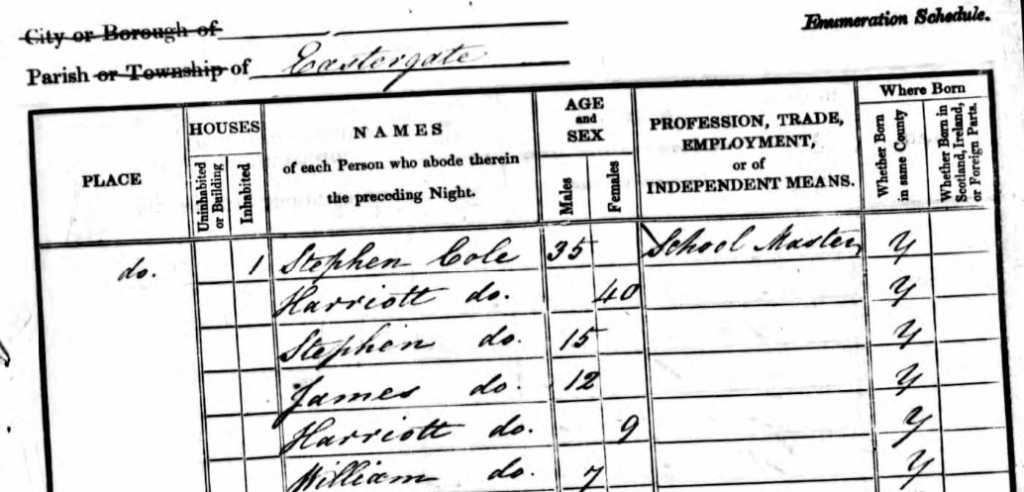 City or Borough of
Enumeration Schedule.
Parish or Township of Eastergate
PLACE
HOUSES
Uninhabited or Building
Inhabited
NAMES
of each Person who abode therein
the preceding Night.
AGE
and
SEX
Males
Females
PROFESSION, TRADE,
EMPLOYMENT,
or of
INDEPENDENT MEANS.
Where Born
Whether Born in same County
Whether Born in Scotland, Ireland, or Foreign Parts.
do. 1 Stephen Cole 35 School Master Y
Harriott do. 40 Y
Stephen do. 15 Y
James do. 12 Y
Harriott do. 9 Y
William do. 7 Y